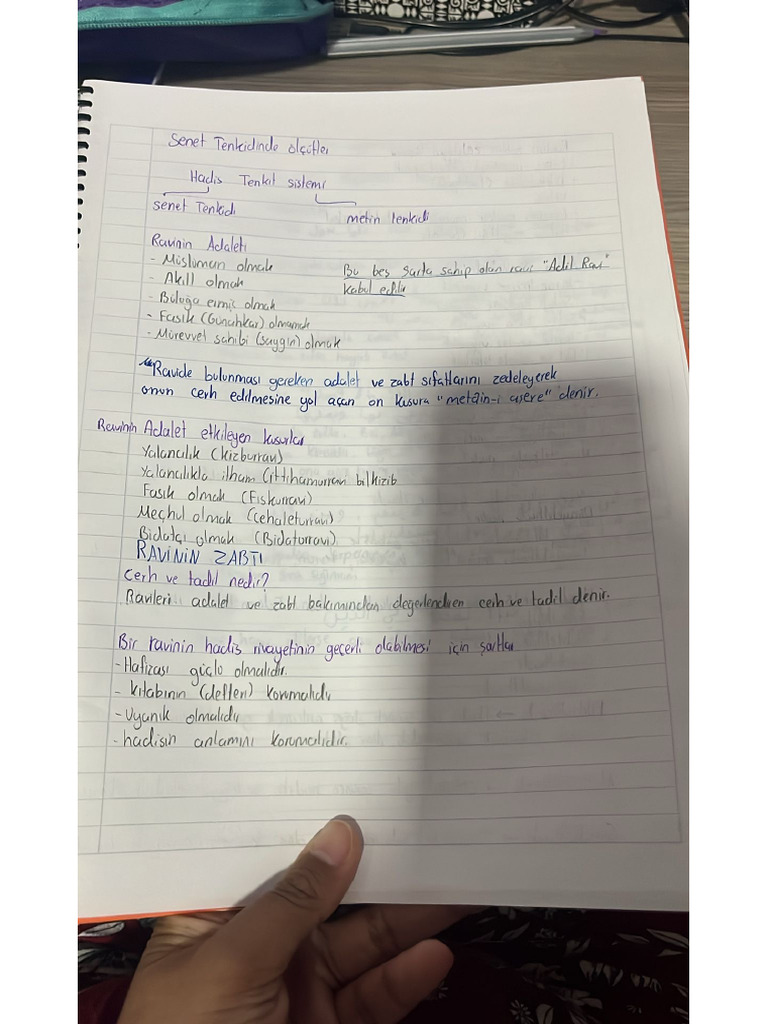 Senet Tenkidinde ölçütler
Hadis Tenkit sistemi
senet Tenkidi
metin tenkidi
Ravinin Adaleti
- Müslüman olmak
- Akıll olmak
- Büluğa ermiş olmak
- Fasık (Günahkar) olmamak
- Mürevvet sahibi (saygın) olmak
Bu beş şarta sahip olan ravi "Adil Ravi"
kabul edilir
"Ravide bulunması gereken adalet ve zabt sıfatlarını zedeleyerek
onun cerh edilmesine yol açan on kusura "metâin-i aşere" denir.
Ravinin Adalet etkileyen kusurlar
Yalancılık (Kizburravi)
Yalancılıkla ilham (ittihamurravi bilkizib
Fasık olmak (Fıskurravi)
Meçhul olmak (cehaleturravi)
Bidatçı olmak (Bidaturravi)
RAVİNİN ZABTI
Cerh ve tadil nedir?
Ravileri adalet ve zabt bakımından değerlendiren cerh ve tadil denir.
Bir ravinin hadis rivayetinin geçerli olabilmesi için şartlar
- Hafızası güçlü olmalıdır.
- Kitabının (defteri) korumalıdır
- Uyanık olmalıdır
- hadisin anlamını korumalıdır.